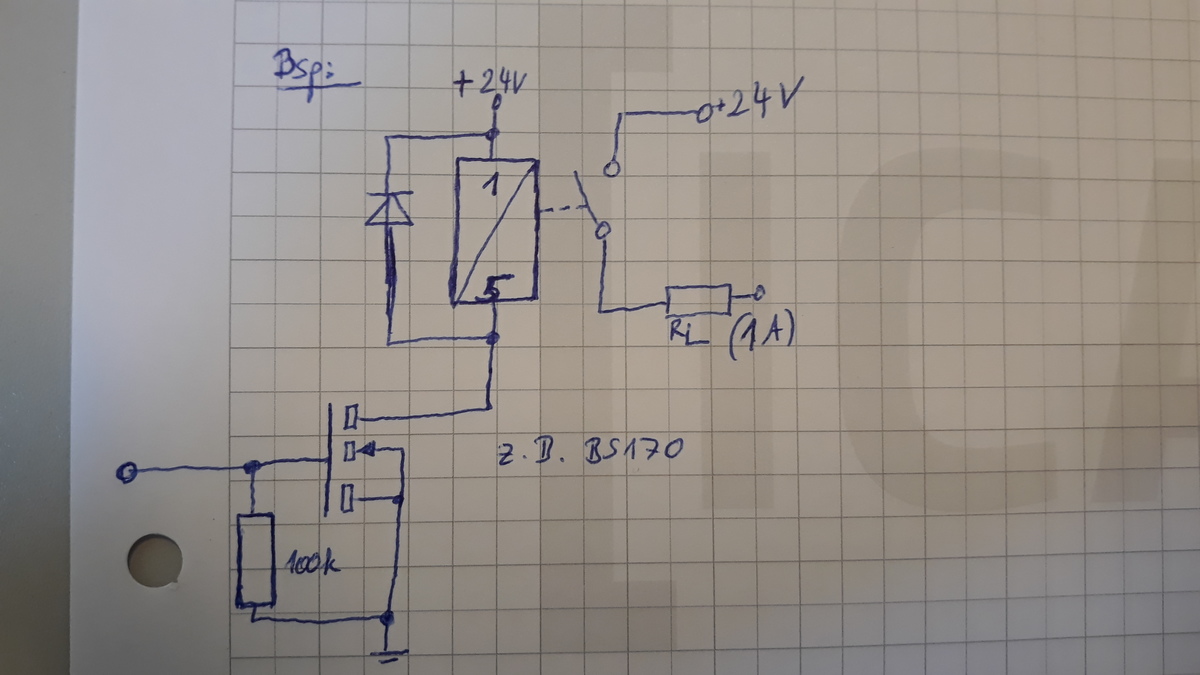 Bsp:
+24V
+24V
1
5
RL (1A)
z.B. BS170
100k
ICA